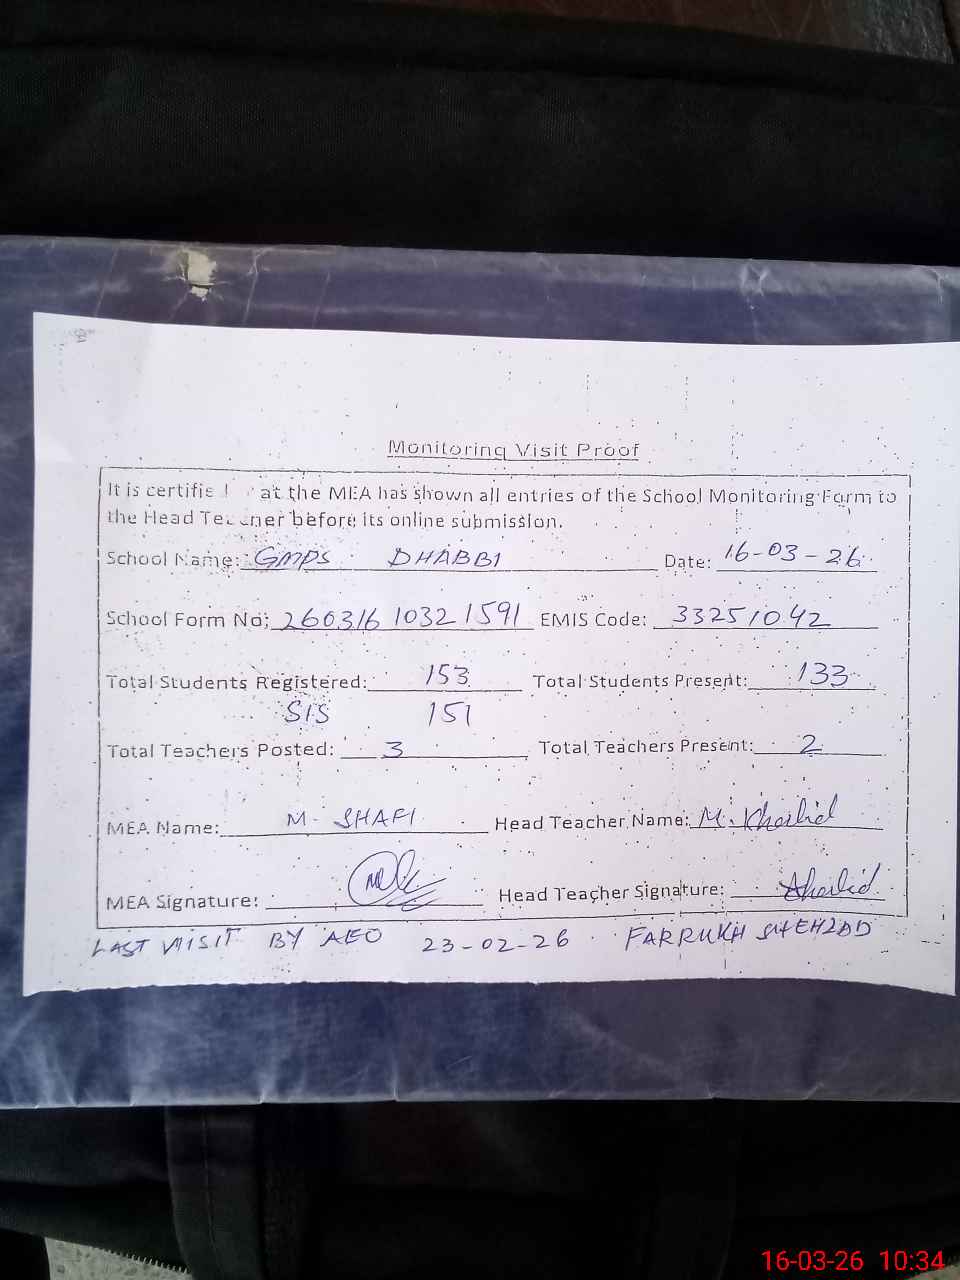 Monitoring Visit Proof
It is certifie at the MEA has shown all entries of the School Monitoring Form to
the Head Teacher before its online submission.
School Name: GMPS DHABBI Date: 16-03-26
School Form No: 260316 1032 1591 EMIS Code: 33251042
Total Students Registered: 153 Total Students Present: 133
SIS 151
Total Teachers Posted: 3 Total Teachers Present: 2
MEA Name: M. SHAFI Head Teacher Name: M. Khalid
MEA Signature: Head Teacher Signature: Khalid
LAST VISIT BY AEO 23-02-26 FARRUKH SHEHZAD
16-03-26 10:34